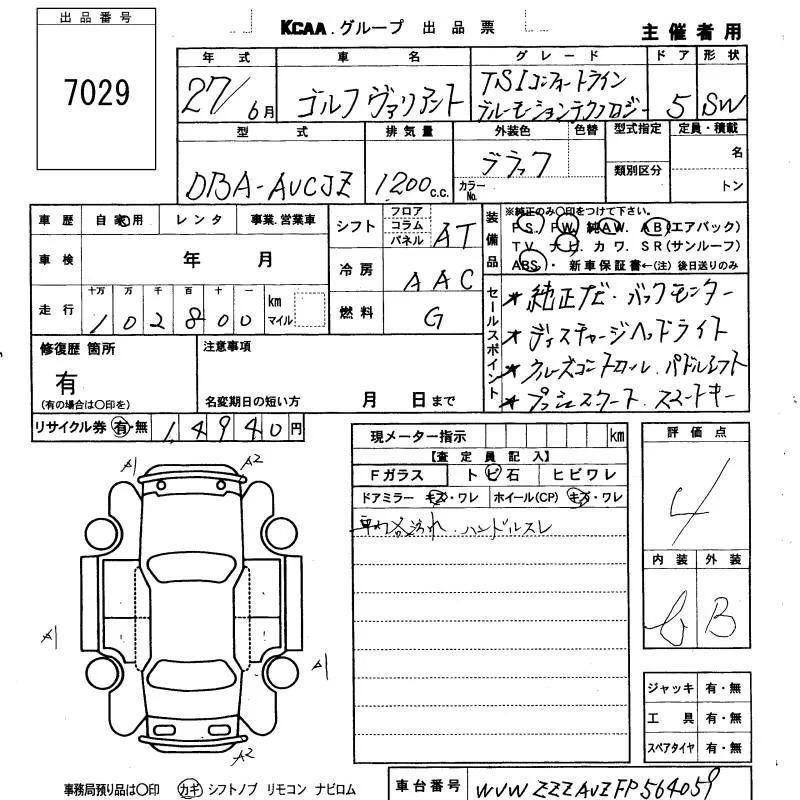 出品番号
7029
KCAA.グループ 出品票
主催者用
年式 車名 グレード ドア 形状
27/6月 ゴルフ ヴァリアント TSIコンフォートライン 5 SW
ブルーモーションテクノロジー
型式 排気量 外装色 色替 型式指定 定員・積載
DBA-AUCJZ 1200c.c. ブラック
カラーNo.
類別区分
名
トン
車歴 自家用 レンタ 事業.営業車
シフト フロア コラム パネル AT
装備品
※純正のみ○印をつけて下さい。
PS. PW. 純AW. AB(エアバック)
TV. ナビ. カワ. SR(サンルーフ)
ABS. ・ 新車保証書←(注)後日送りのみ
車検 年 月
冷房 AAC
走行 十万 万 千 百 十 一
102800 km マイル
燃料 G
セールスポイント
★純正ナビ・バックモニター
★ディスチャージヘッドライト
★クルーズコントロール.パドルシフト
★プッシュスタート.スマートキー
修復歴 箇所
有
(有の場合は○印を)
注意事項
名変期日の短い方 月 日まで
リサイクル券 有・無 14940円
現メーター指示 km
【査定員記入】
Fガラス トビ石 ヒビワレ
ドアミラー キズ・ワレ ホイール(CP) キズ・ワレ
車内汚れ.ハンドルスレ
評価点
4
内装 外装
B
A1 A2
A1
A1
A2
ジャッキ 有・無
工具 有・無
スペアタイヤ 有・無
事務局預り品は○印 カギ シフトノブ リモコン ナビロム
車台番号 WVWZZZAUZFP564059